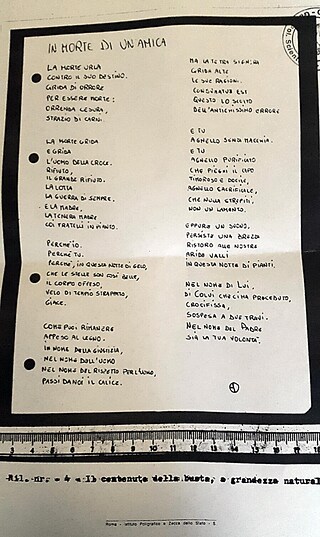 IN MORTE DI UN'AMICA
LA MORTE URLA
CONTRO IL SUO DESTINO.
GRIDA DI ORRORE
PER ESSERE MORTE:
ORRENDA CESURA,
STRAZIO DI CARNI.
LA MORTE GRIDA
E GRIDA
L'UOMO DELLA CROCE.
RIFIUTO,
IL GRANDE RIFIUTO.
LA LOTTA
LA GUERRA DI SEMPRE.
E LA MADRE,
LA TENERA MADRE
COI FRATELLI IN PIANTO.
PERCHÉ IO.
PERCHÉ TU.
PERCHÉ, IN QUESTA NOTTE DI GELO,
CHE LE STELLE SON COSÌ BELLE,
IL CORPO OFFESO,
VELO DI TEMPIO STRAPPATO,
GIACE.
COME PUOI RIMANERE
APPESO AL LEGNO.
IN NOME DELLA GIUSTIZIA,
NEL NOME DELL'UOMO
NEL NOME DEL RISPETTO PER L'UOMO,
PASSI DA NOI IL CALICE.
MA LA TETRA SIGNORA
GRIDA ALTE
LE SUE RAGIONI.
CONSUMATUS EST
QUESTO LO
DELL'ANTICHISSIMO ERRORE
E TU
AGNELLO SENZA MACCHIA.
E TU
AGNELLO PURIFICATO
CHE PIEGHI IL CAPO
TIMOROSO E DOCILE,
AGNELLO SACRIFICALE,
CHE NULLA STREPITI,
NON UN LAMENTO.
EPPURE UN SUONO.
PERSISTE UNA BREZZA
RISTORO ALLE NOSTRE
ARIDE VALLI
IN QUESTA NOTTE DI PIANTI.
NEL NOME DI LUI.
DI COLUI CHE CI HA PRECEDUTO,
CROCIFISSA,
SOSPESA A DUE TRAVI.
NEL NOME DEL PADRE
SIA LA TUA VOLONTÀ.
Ril. nr. - 4 - Il contenuto della busta, a grandezza natural
Roma - Istituto Poligrafico e Zecca dello Stato - S.